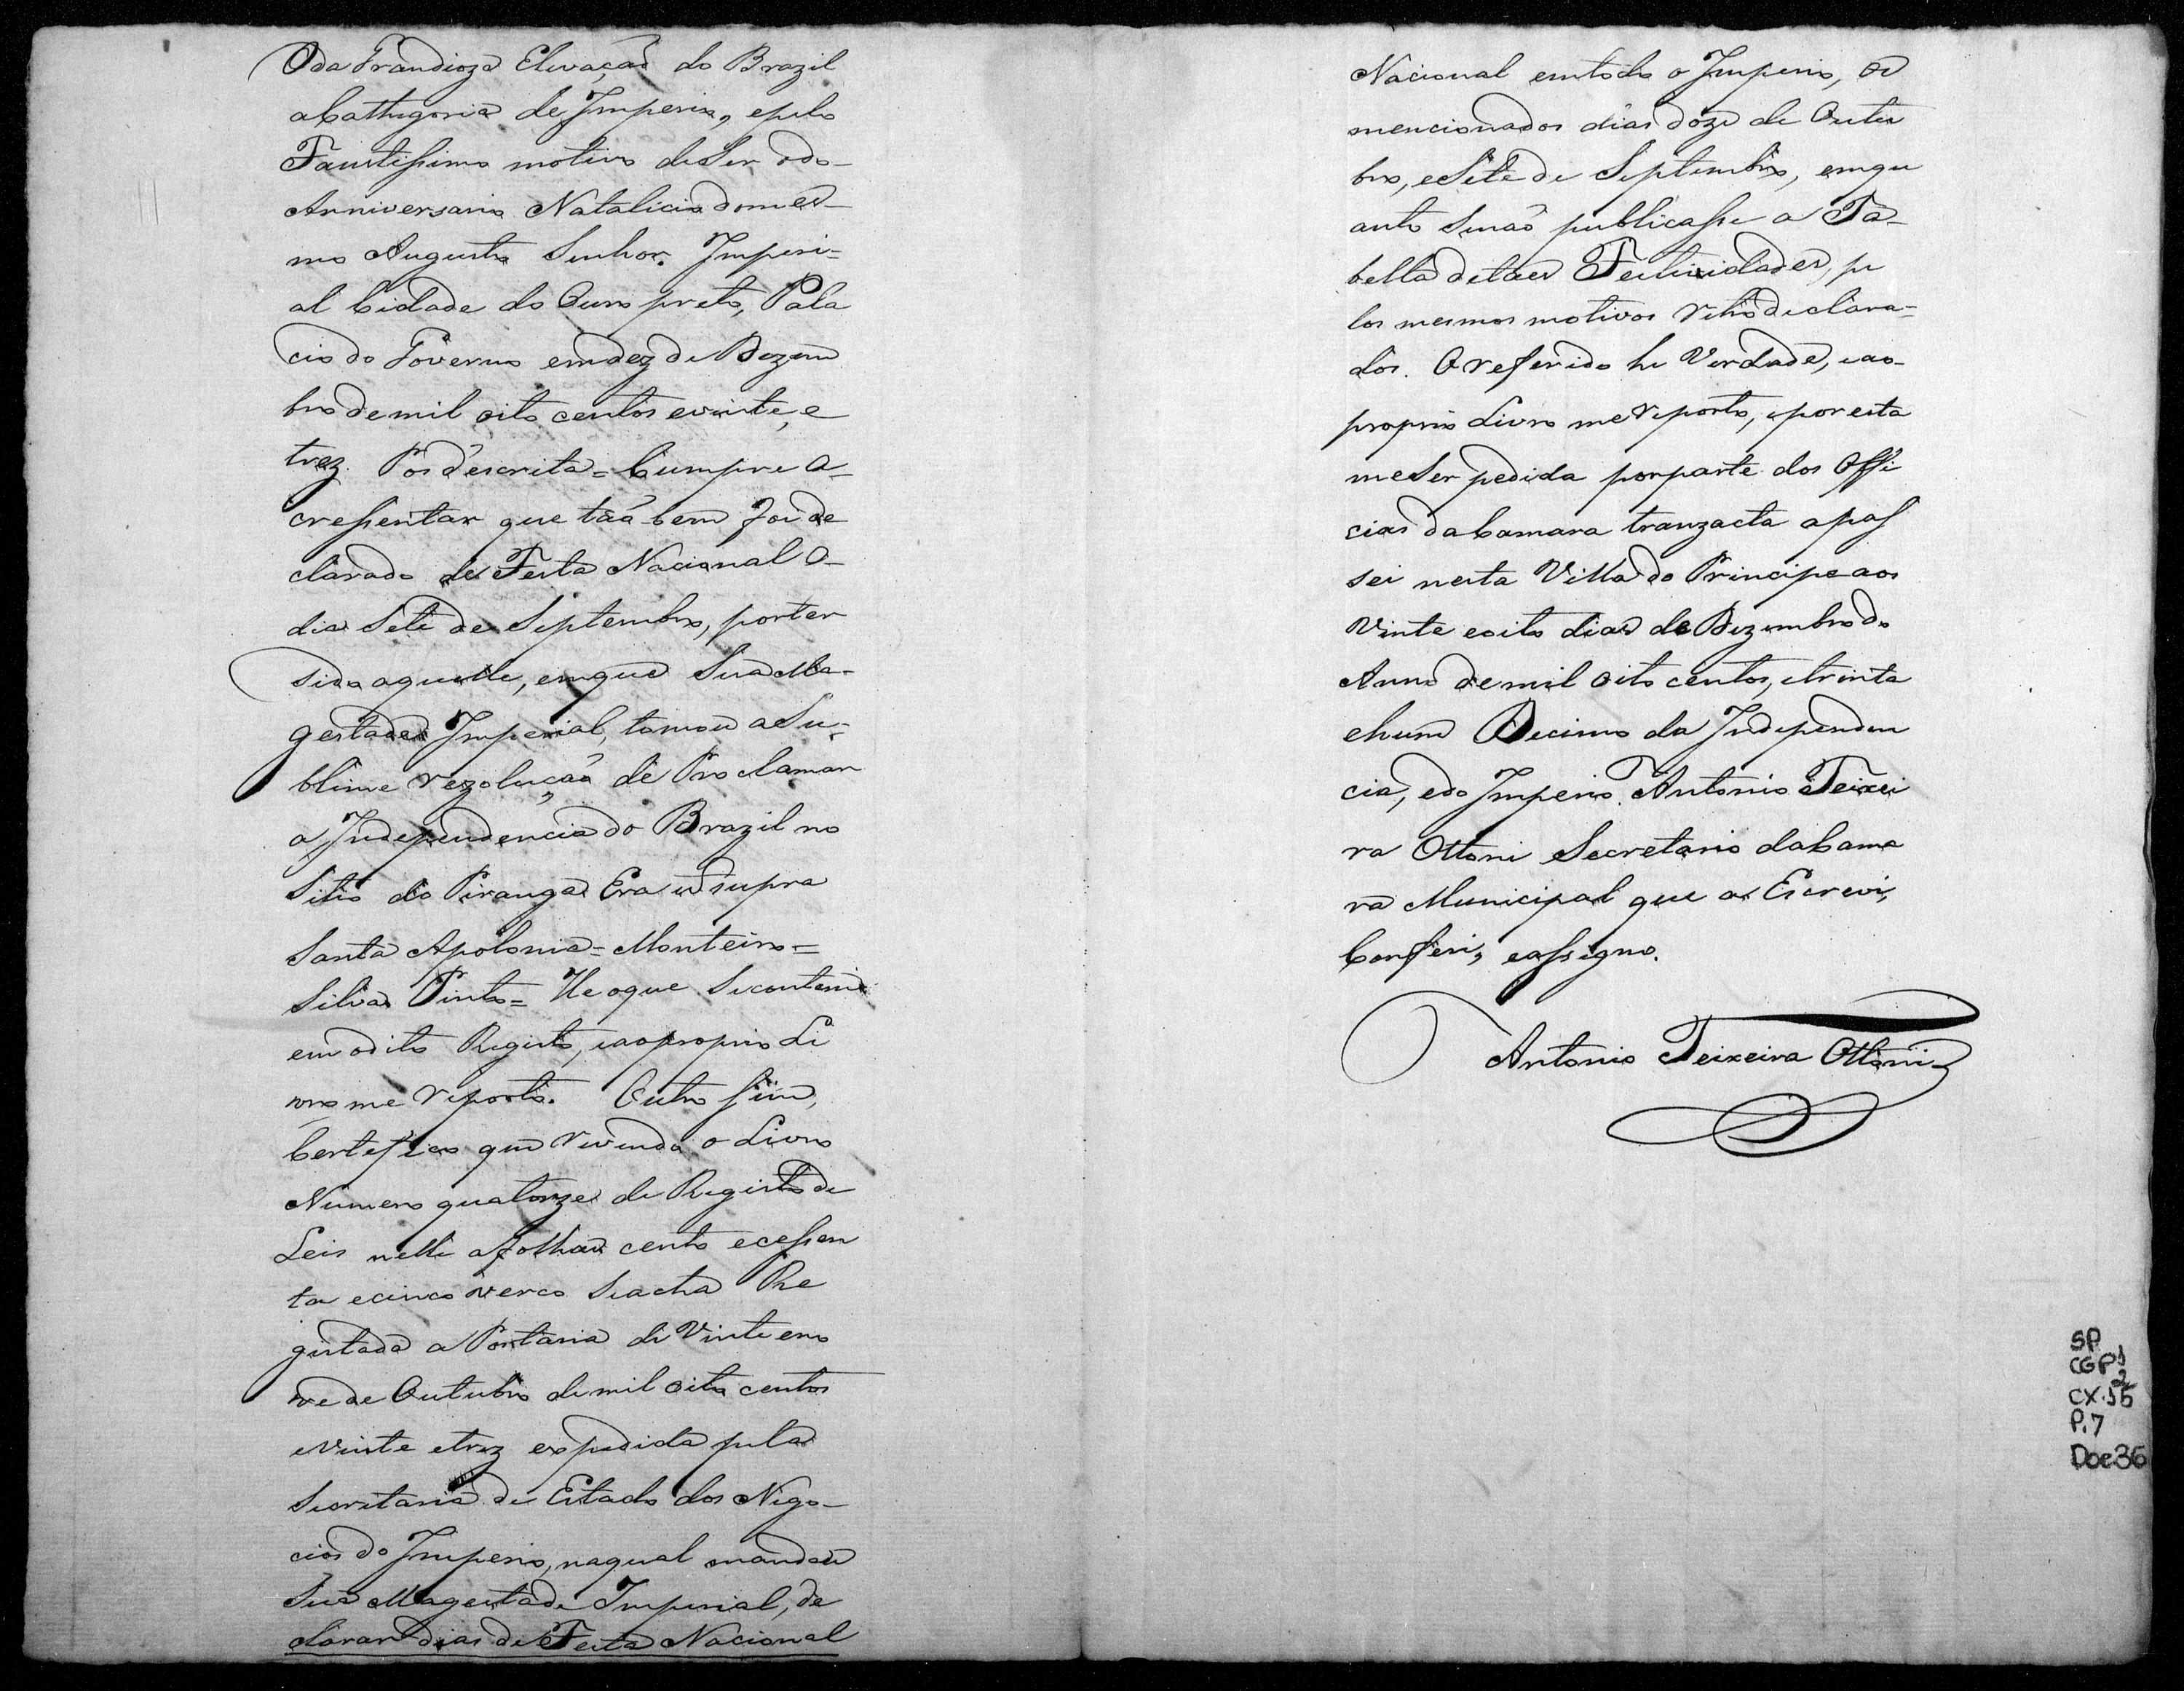 O da Grandioza Elevação do Brazil
a Cathegoria de Imperio, e pelo
Faustissimo motivo de Ser o do
Anniversario Natalicio do mes-
mo Augusto Senhor. Imperi-
al Cidade do Ouro preto, Pala
cio do Governo em dez de Dezem
bro de mil oito centos e vinte, e
trez. Pos d'escrita = Cumpre a-
cressentar que tão bem foi de
clarado de Festa Nacional o
dia Sete de Septembro, por ter
sido aquelle, em que Sua Ma-
gestade Imperial, tomou a Su-
blime rezolução de Proclamar
a Independencia do Brazil no
Sitio do Piranga Era ut supra
Santa Apolonia = Monteiro =
Silva Pinto = He o que Se continha
em o dito Registo, e ao proprio Li
vro me reporto. Outro sim,
Certefico que revendo o Livro
Numero quatorze de Registo de
Leis nelle a folhas cento e cessen
ta e cinco verco Se acha Re
gistada a Portaria de Vinte e no
ve de Outubro de mil oito centos
e vinte e trez expedida pela
Secretaria de Estado dos Nego-
cios do Imperio, na qual mandou
Sua Magestade Imperial, de
clarar dias de Festa Nacional
Nacional em todo o Imperio, os
mencionados dias doze de Outu
bro, e Sete de Septembro, em qu
anto Se não publicasse a Ta-
bella de taes Festividades, pe
los mesmos motivos n'elle declara-
dos. O referido he Verdade, e ao
proprio Livro me reporto, e por esta
me Ser pedida por parte dos Offi
ciaes da Camara tranzacta a pas
sei nesta Villa do Principe aos
Vinte e oito dias de Dezembro do
Anno de mil oito centos, e trinta
e hum Decimo da Independen
cia, e do Imperio. Antonio Teixei
ra Ottoni Secretario da Cama
ra Municipal que a Escrevi,
Conferi, e assigno.
Antonio Teixeira Ottoni
SP
CGP1
2
CX.15
P.7
Doc36